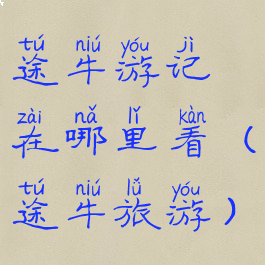 tú niú yóu jì
途牛游记
zài nǎ lǐ kàn
在哪里看（
tú niú lǚ yóu
途牛旅游）